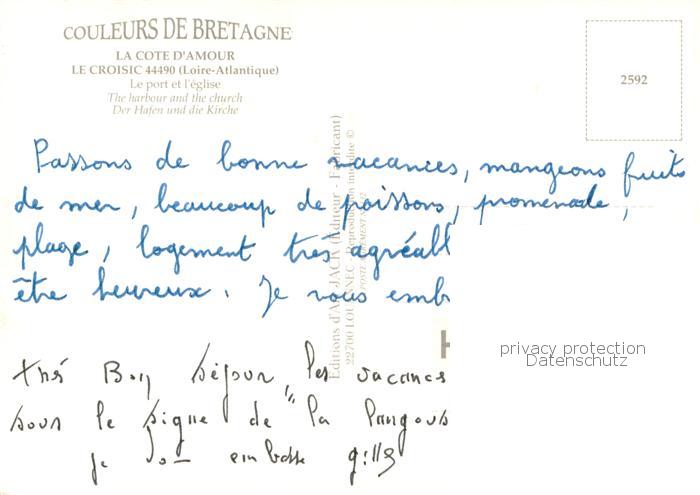 COULEURS DE BRETAGNE
LA COTE D'AMOUR
LE CROISIC 44490 (Loire-Atlantique)
Le port et l'église
The harbour and the church
Der Hafen und die Kirche
2592
Passons de bonne vacances, mangeons fruits
de mer, beaucoup de poissons, promenade,
plage, logement très agréabl
être heureux. Je vous emb
Editions d'Art JACK (Editeur - Fabricant)
22700 LOUANNEC Reproduction interdite ©
privacy protection
Datenschutz
très Bon séjour, les vacances
sous le signe de "la langous
je embrasse gilles